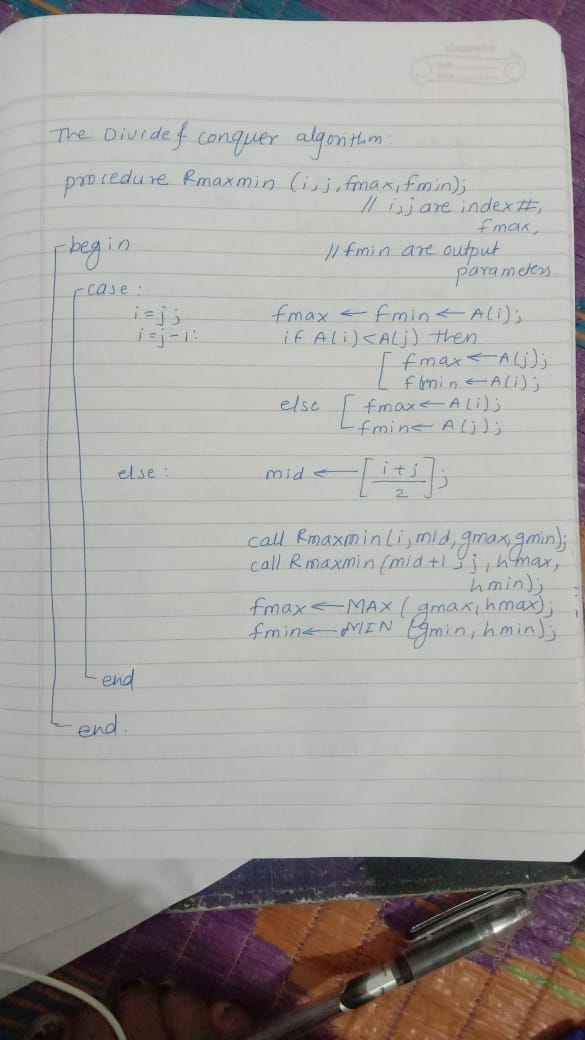 classmate
Date
Page
The Divide & conquer algorithm:
procedure Rmaxmin (i,j,fmax,fmin);
// i,j are index #,
fmax,
begin // fmin are output
parameters
case:
i=j; fmax ← fmin ← A(i);
i=j-1: if A(i)<A(j) then
[ fmax ← A(j);
fmin ← A(i);
else [ fmax ← A(i);
fmin ← A(j);
else: mid ← [ i+j
2 ];
call Rmaxmin(i,mid,gmax,gmin);
call Rmaxmin(mid+1,j,hmax,
hmin);
fmax ← MAX (gmax,hmax);
fmin ← MIN (gmin,hmin);
end
end.